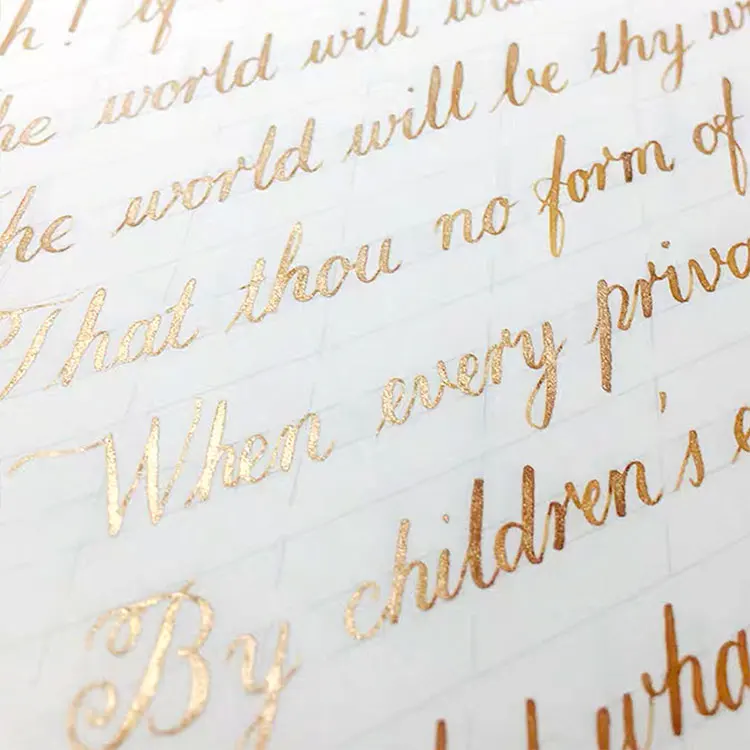 h! if
he world will
he world will be thy
That thou no form of
When every
By children's